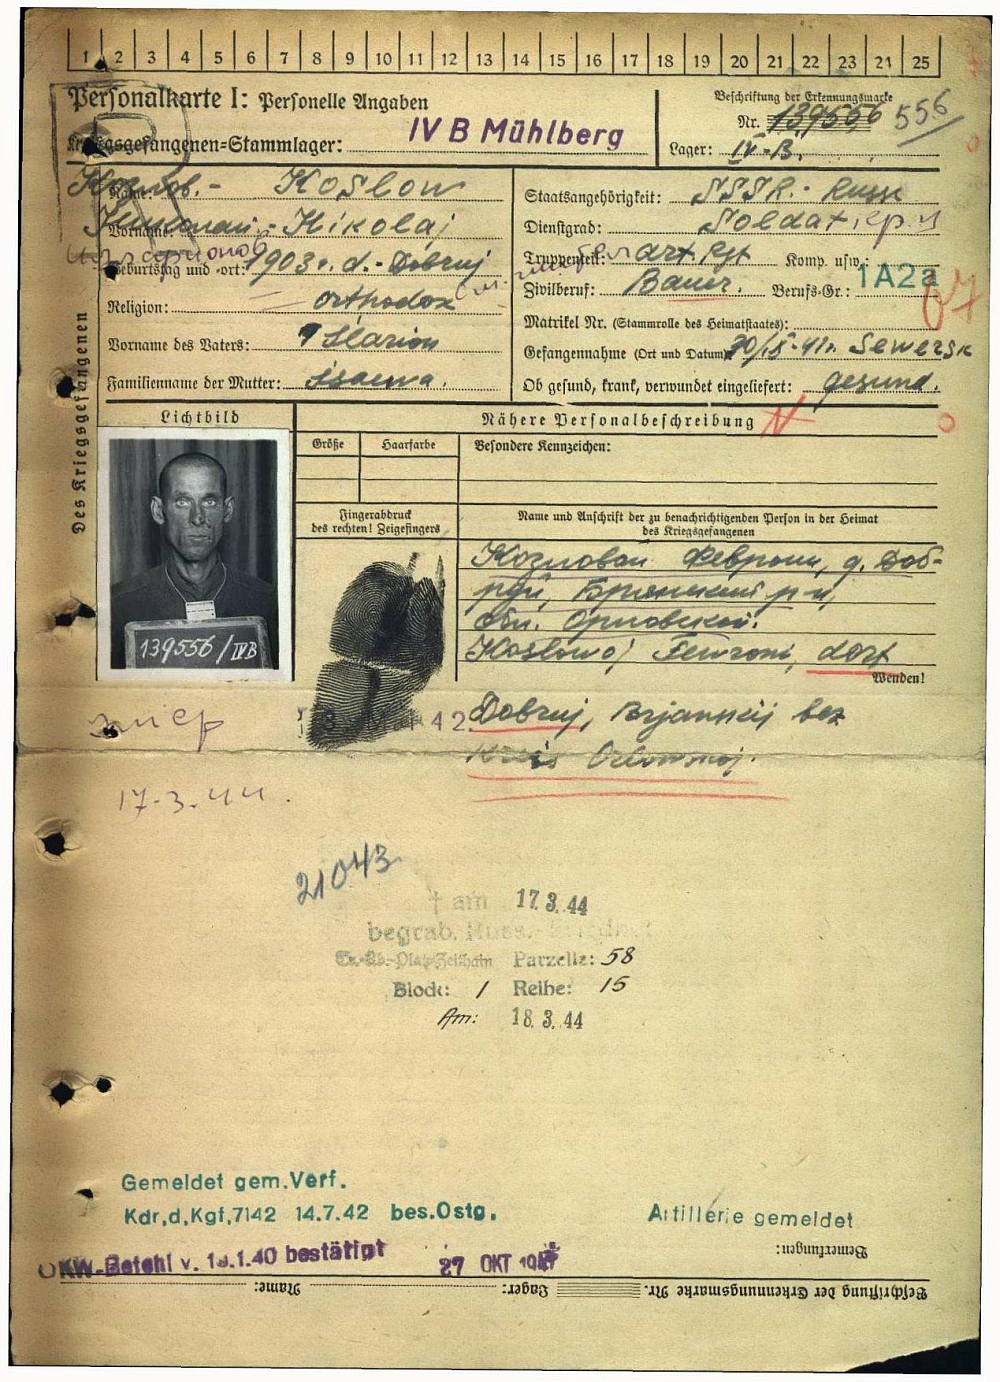 1 2 3 4 5 6 7 8 9 10 11 12 13 14 15 16 17 18 19 20 21 22 23 24 25
Personalkarte I: Personelle Angaben
Beschriftung der Erkennungsmarke
Nr. 139556 556
Kriegsgefangenen=Stammlager: IV B Mühlberg
Lager: IV-B.
Des Kriegsgefangenen
Name: Козлов.- Koslow
Staatsangehörigkeit: SSSR.- Russe
Vorname: Nikolaj
Dienstgrad: Soldat
Илларионов
Geburtstag und -ort: 1903 d.- Dobruj
Truppenteil: art. Rgt Komp. usw.:
Religion: orthodox
Zivilberuf: Bauer. Berufs-Gr.: 1A2a
67
Matrikel Nr. (Stammrolle des Heimatstaates):
Vorname des Vaters: Ilarion
Gefangennahme (Ort und Datum): Sewersk
Familienname der Mutter: Isaewa.
Ob gesund, krank, verwundet eingeliefert: gesund.
Lichtbild
Nähere Personalbeschreibung
Größe Haarfarbe Besondere Kennzeichen:
Fingerabdruck
des rechten! Zeigefingers
Name und Anschrift der zu benachrichtigenden Person in der Heimat
des Kriegsgefangenen
Козловой Феврони, д. Доб-
руй, Брянский р-н,
обл. Орловской.
Koslowoj Fewroni, dorf
Wenden!
139556/IVB
Dobruj, Brjanskij bez
Kreis Orlowskoj.
умер
42
17-3.44.
21043
† am 17.3.44
begrab. Russ.-Friedhof
Tr.-Üb.-Platz Zeithain Parzelle: 58
Block: 1 Reihe: 15
Am: 18.3.44
Gemeldet gem.Verf.
Kdr.d.Kgf.7142 14.7.42 bes.Ostg.
Artillerie gemeldet
Bemerkungen:
OKW-Befehl v. 1.40 bestätigt 27 OKT
Name: Lager: Beschriftung der Erkennungsmarke Nr.